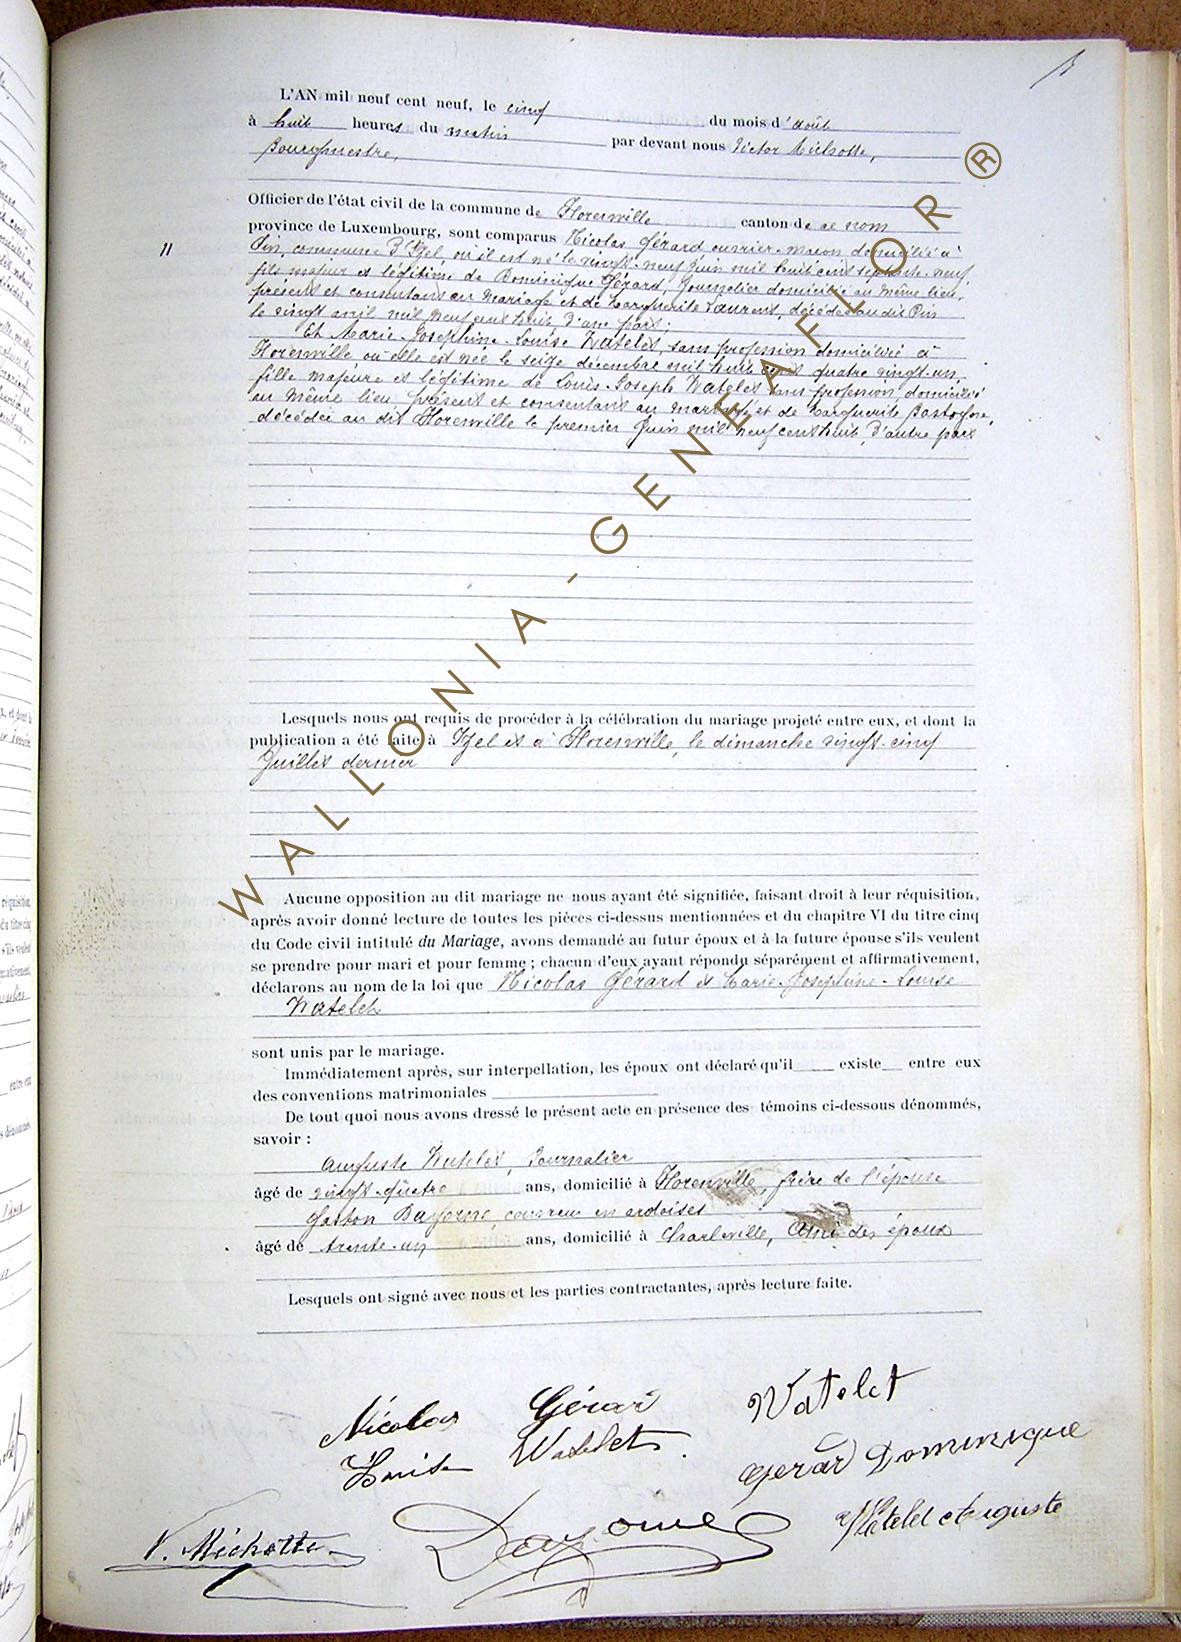 13
L'AN mil neuf cent neuf, le cinq du mois d'août
à huit heures du matin par devant nous Victor Michotte,
Bourgmestre,
Officier de l'état civil de la commune de Florenville canton de ce nom
province de Luxembourg, sont comparus Nicolas Gérard ouvrier-maçon domicilié à
11
Pin, commune d'Izel, où il est né le vingt-neuf Juin mil huit cent septante-neuf
fils majeur et légitime de Dominique Gérard, Journalier domicilié au même lieu,
présent et consentant au mariage et de Marguerite Laurent, décédée au dit Pin
le vingt avril mil neuf cent huit d'une part;
Et Marie-Joséphine-Louise Watelet, sans profession domiciliée à
Florenville où elle est née le seize décembre mil huit cent quatre vingt-un,
fille majeure et légitime de Louis-Joseph Watelet sans profession, domicilié
au même lieu présent et consentant au mariage et de Marguerite Bastogne,
décédée au dit Florenville le premier Juin mil neuf cent huit, d'autre part
Lesquels nous ont requis de procéder à la célébration du mariage projeté entre eux, et dont la
publication a été faite à Izel et à Florenville, le dimanche vingt-cinq
Juillet dernier
Aucune opposition au dit mariage ne nous ayant été signifiée, faisant droit à leur réquisition,
après avoir donné lecture de toutes les pièces ci-dessus mentionnées et du chapitre VI du titre cinq
du Code civil intitulé du Mariage, avons demandé au futur époux et à la future épouse s'ils veulent
se prendre pour mari et pour femme ; chacun d'eux ayant répondu séparément et affirmativement,
déclarons au nom de la loi que Nicolas Gérard et Marie-Joséphine-Louise
Watelet
sont unis par le mariage.
Immédiatement après, sur interpellation, les époux ont déclaré qu'il existe entre eux
des conventions matrimoniales
De tout quoi nous avons dressé le présent acte en présence des témoins ci-dessous dénommés,
savoir :
Auguste Watelet, Journalier
âgé de vingt-quatre ans, domicilié à Florenville, frère de l'épouse
Gaston couvreur en ardoises
âgé de trente-un ans, domicilié à Charleville, Ami des époux
Lesquels ont signé avec nous et les parties contractantes, après lecture faite.
Nicolas Gérard Watelet
Louise Watelet Gérard Dominique
V. Michotte Watelet Auguste
WALLONIA-GENEAFLOR®